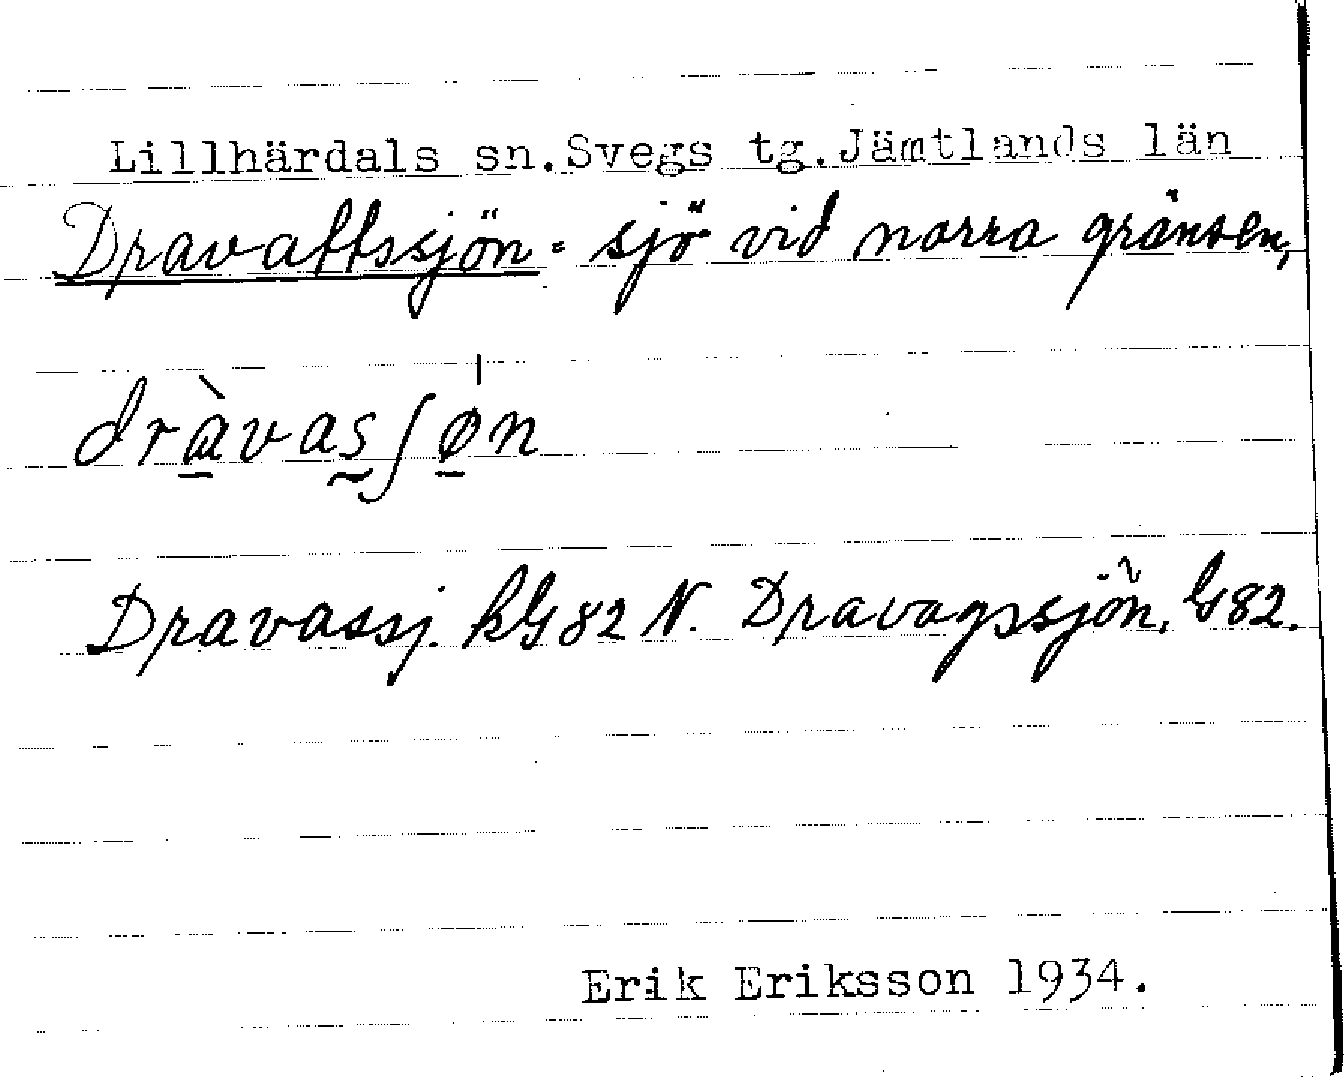 Lillhärdals sn. Svegs tg. Jämtlands län
Dravattssjön = sjö vid norra gränsen,
dràvasʃøn
Dravassj. kG 82 N. Dravagssjön, G 82.
Erik Eriksson 1934.